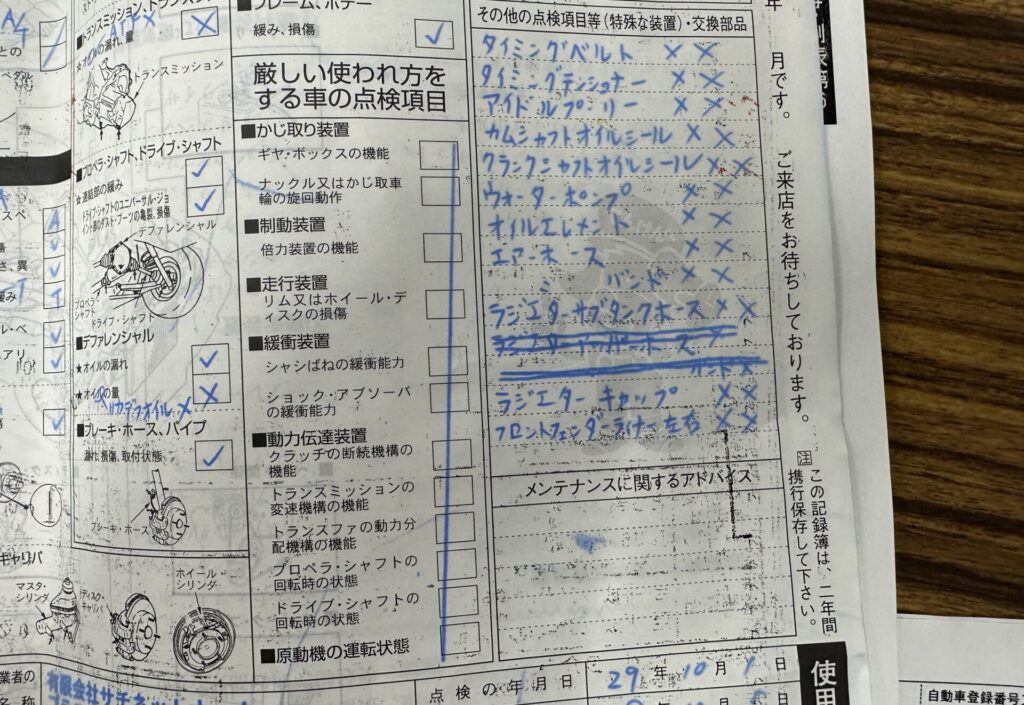 トランスミッション、トランスファ
★オイルの漏れ、量
トランスミッション
■プロペラ・シャフト、ドライブ・シャフト
★連結部の緩み
ドライブ・シャフトのユニバーサル・ジョ
イント部のダスト・ブーツの亀裂、損傷
デファレンシャル
プロペラ・
シャフト
ドライブ・シャフト
■デファレンシャル
★オイルの漏れ
★オイルの量
リヤデフオイル ×
■ブレーキ・ホース、パイプ
漏れ、損傷、取付状態
ブレーキ・ホース
キャリパ
マスタ・
シリンダ
ディスク・
キャリパ
ホイール・
シリンダ
フレーム、ボデー
緩み、損傷
厳しい使われ方を
する車の点検項目
■かじ取り装置
ギヤ・ボックスの機能
ナックル又はかじ取車
輪の旋回動作
■制動装置
倍力装置の機能
■走行装置
リム又はホイール・デ
ィスクの損傷
■緩衝装置
シャシばねの緩衝能力
ショック・アブソーバ
の緩衝能力
■動力伝達装置
クラッチの断続機構の
機能
トランスミッションの
変速機構の機能
トランスファの動力分
配機構の機能
プロペラ・シャフトの
回転時の状態
ドライブ・シャフトの
回転時の状態
■原動機の運転状態
その他の点検項目等(特殊な装置)・交換部品
タイミングベルト × ×
タイミングテンショナー × ×
アイドルプーリー × ×
カムシャフトオイルシール × ×
クランクシャフトオイルシール × ×
ウォーターポンプ × ×
オイルエレメント × ×
エアーホース × ×
〃 バンド × ×
ラジエターサブタンクホース × ×
ラジエターキャップ × ×
フロントフェンダーライナー左右 × ×
メンテナンスに関するアドバイス
年 月です。 ご来店をお待ちしております。
注 この記録簿は、二年間
携行保存して下さい。
点検の年月日 29年10月1日
業者の
名称
有限会社サチネット
使用
自動車登録番号